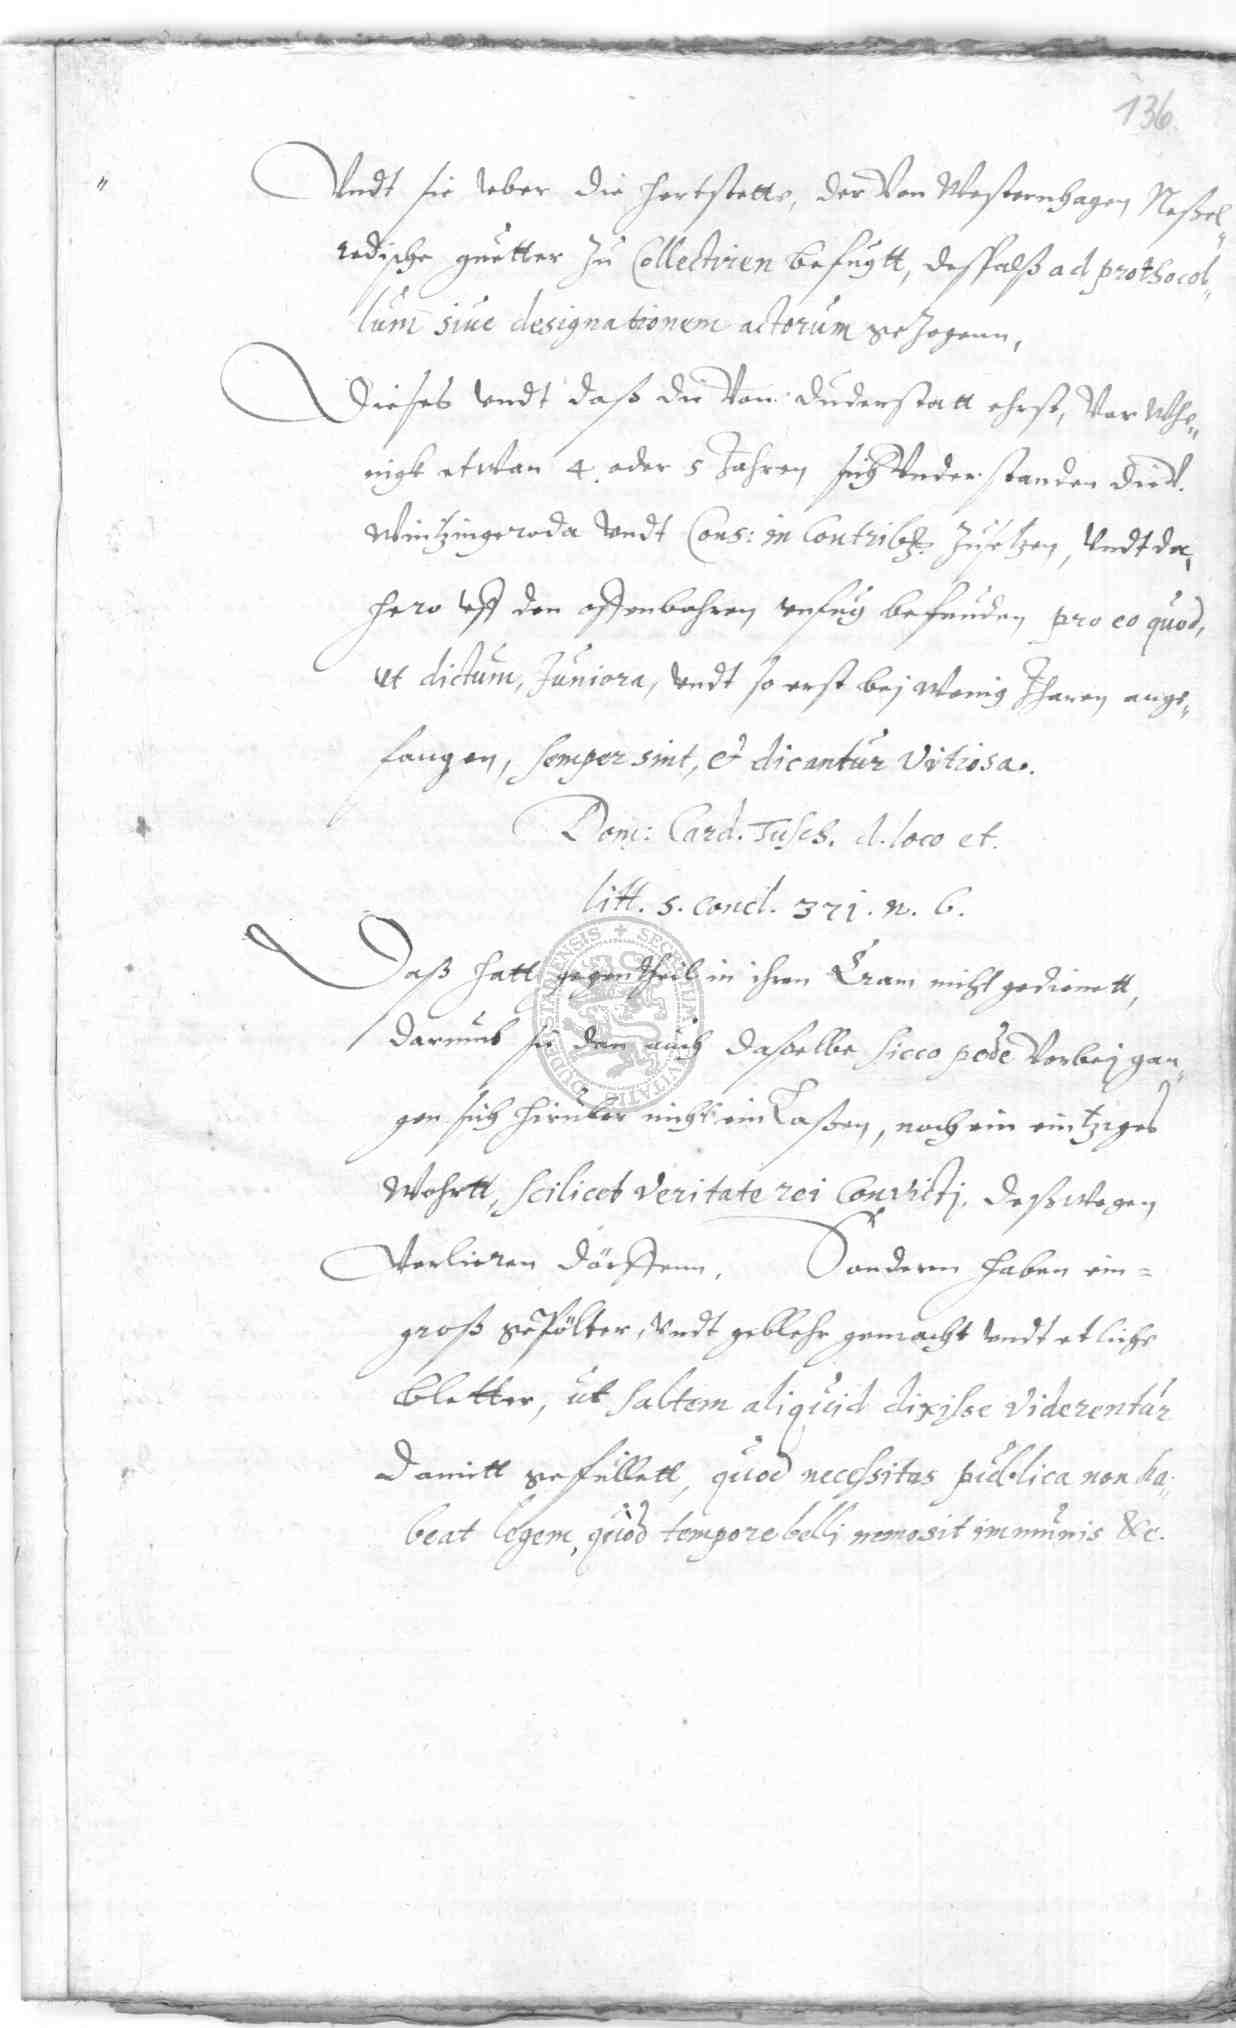 136
Vndt sie vber die hertstette, der Von Westernhagen Neßel„
redische guetter Zu Collectiren befugtt, deßfalß ad prothocol„
lum siue designationem actorum gezogenn,
Dieses vndt daß die Von Duderstatt ehrst, Vor We„
nigk etwan 4. oder 5 Jahren sich Vnderstanden die V.
Wintzingeroda vndt Cons: in Contrib: Zusetzen, vndt da„
hero vff den offenbahren vnfug befunden pro eo quod,
ut dictum, Juniora, vndt so erst bej wenig Jharen ange„
fangen, semper sint, et dicantur Vitiosa.
Dom: Card. Tusch. d. loco et.
litt. s. concl. 371. n. 6.
Daß hatt gegentheil in ihren Cram nicht gedienett,
darumb sie dan auch daßelbe sicco pede Vorbej gan„
gen sich hirüber nicht ein Laßen, noch ein eintziges
Wohrtt, scilicet veritate rei Convictj, deßwegen
Verlieren dörffenn, Sondern haben ein=
groß gepölter, vndt geblehr gemacht vndt etliche
Bletter, ut saltem aliquid dixisse viderentur
damitt gefüllett, quod necessitas publica non ha„
beat legem, quod tempore belli nemo sit immunis &c.